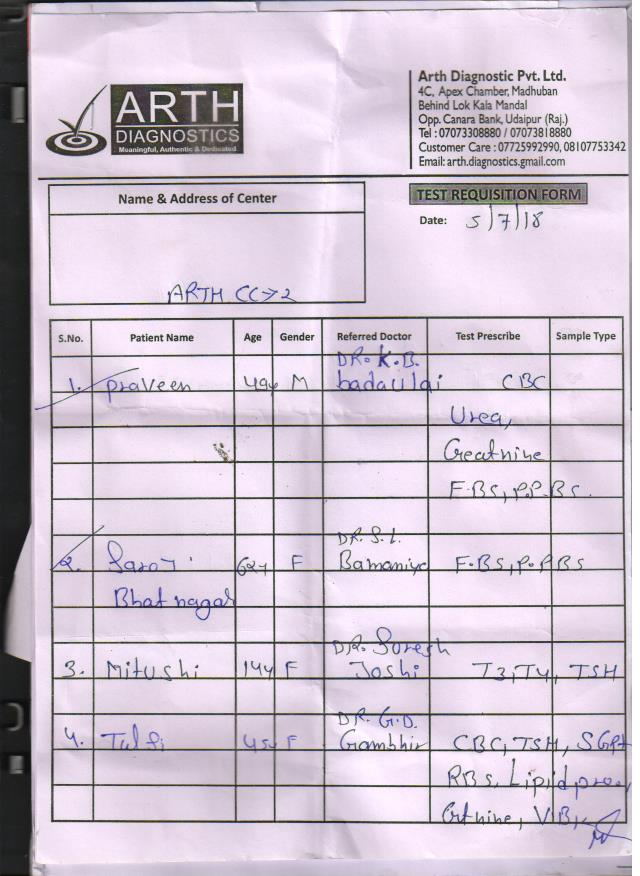 ARTH
DIAGNOSTICS
Meaningful, Authentic & Dedicated
Arth Diagnostic Pvt. Ltd.
4C, Apex Chamber, Madhuban
Behind Lok Kala Mandal
Opp. Canara Bank, Udaipur (Raj.)
Tel : 07073308880 / 07073818880
Customer Care : 07725992990, 08107753342
Email: arth.diagnostics.gmail.com
Name & Address of Center
ARTH CC→2
TEST REQUISITION FORM
Date: 5/7/18
S.No. Patient Name Age Gender Referred Doctor Test Prescribe Sample Type
DR. K.B.
1. Praveen 49y M CBC
Urea,
Creatnine
F.BS, P.P.BS.
DR. S.L.
2. Saroj 62y F Bamaniya F.BS, P.PBS
Bhatnagar
DR. Suresh
3. Mitushi 14y F Joshi T3, T4, TSH
DR. G.D.
4. Tulsi 45y F Gambhir CBC, TSH, SGPT
RBS, Lipid pro,